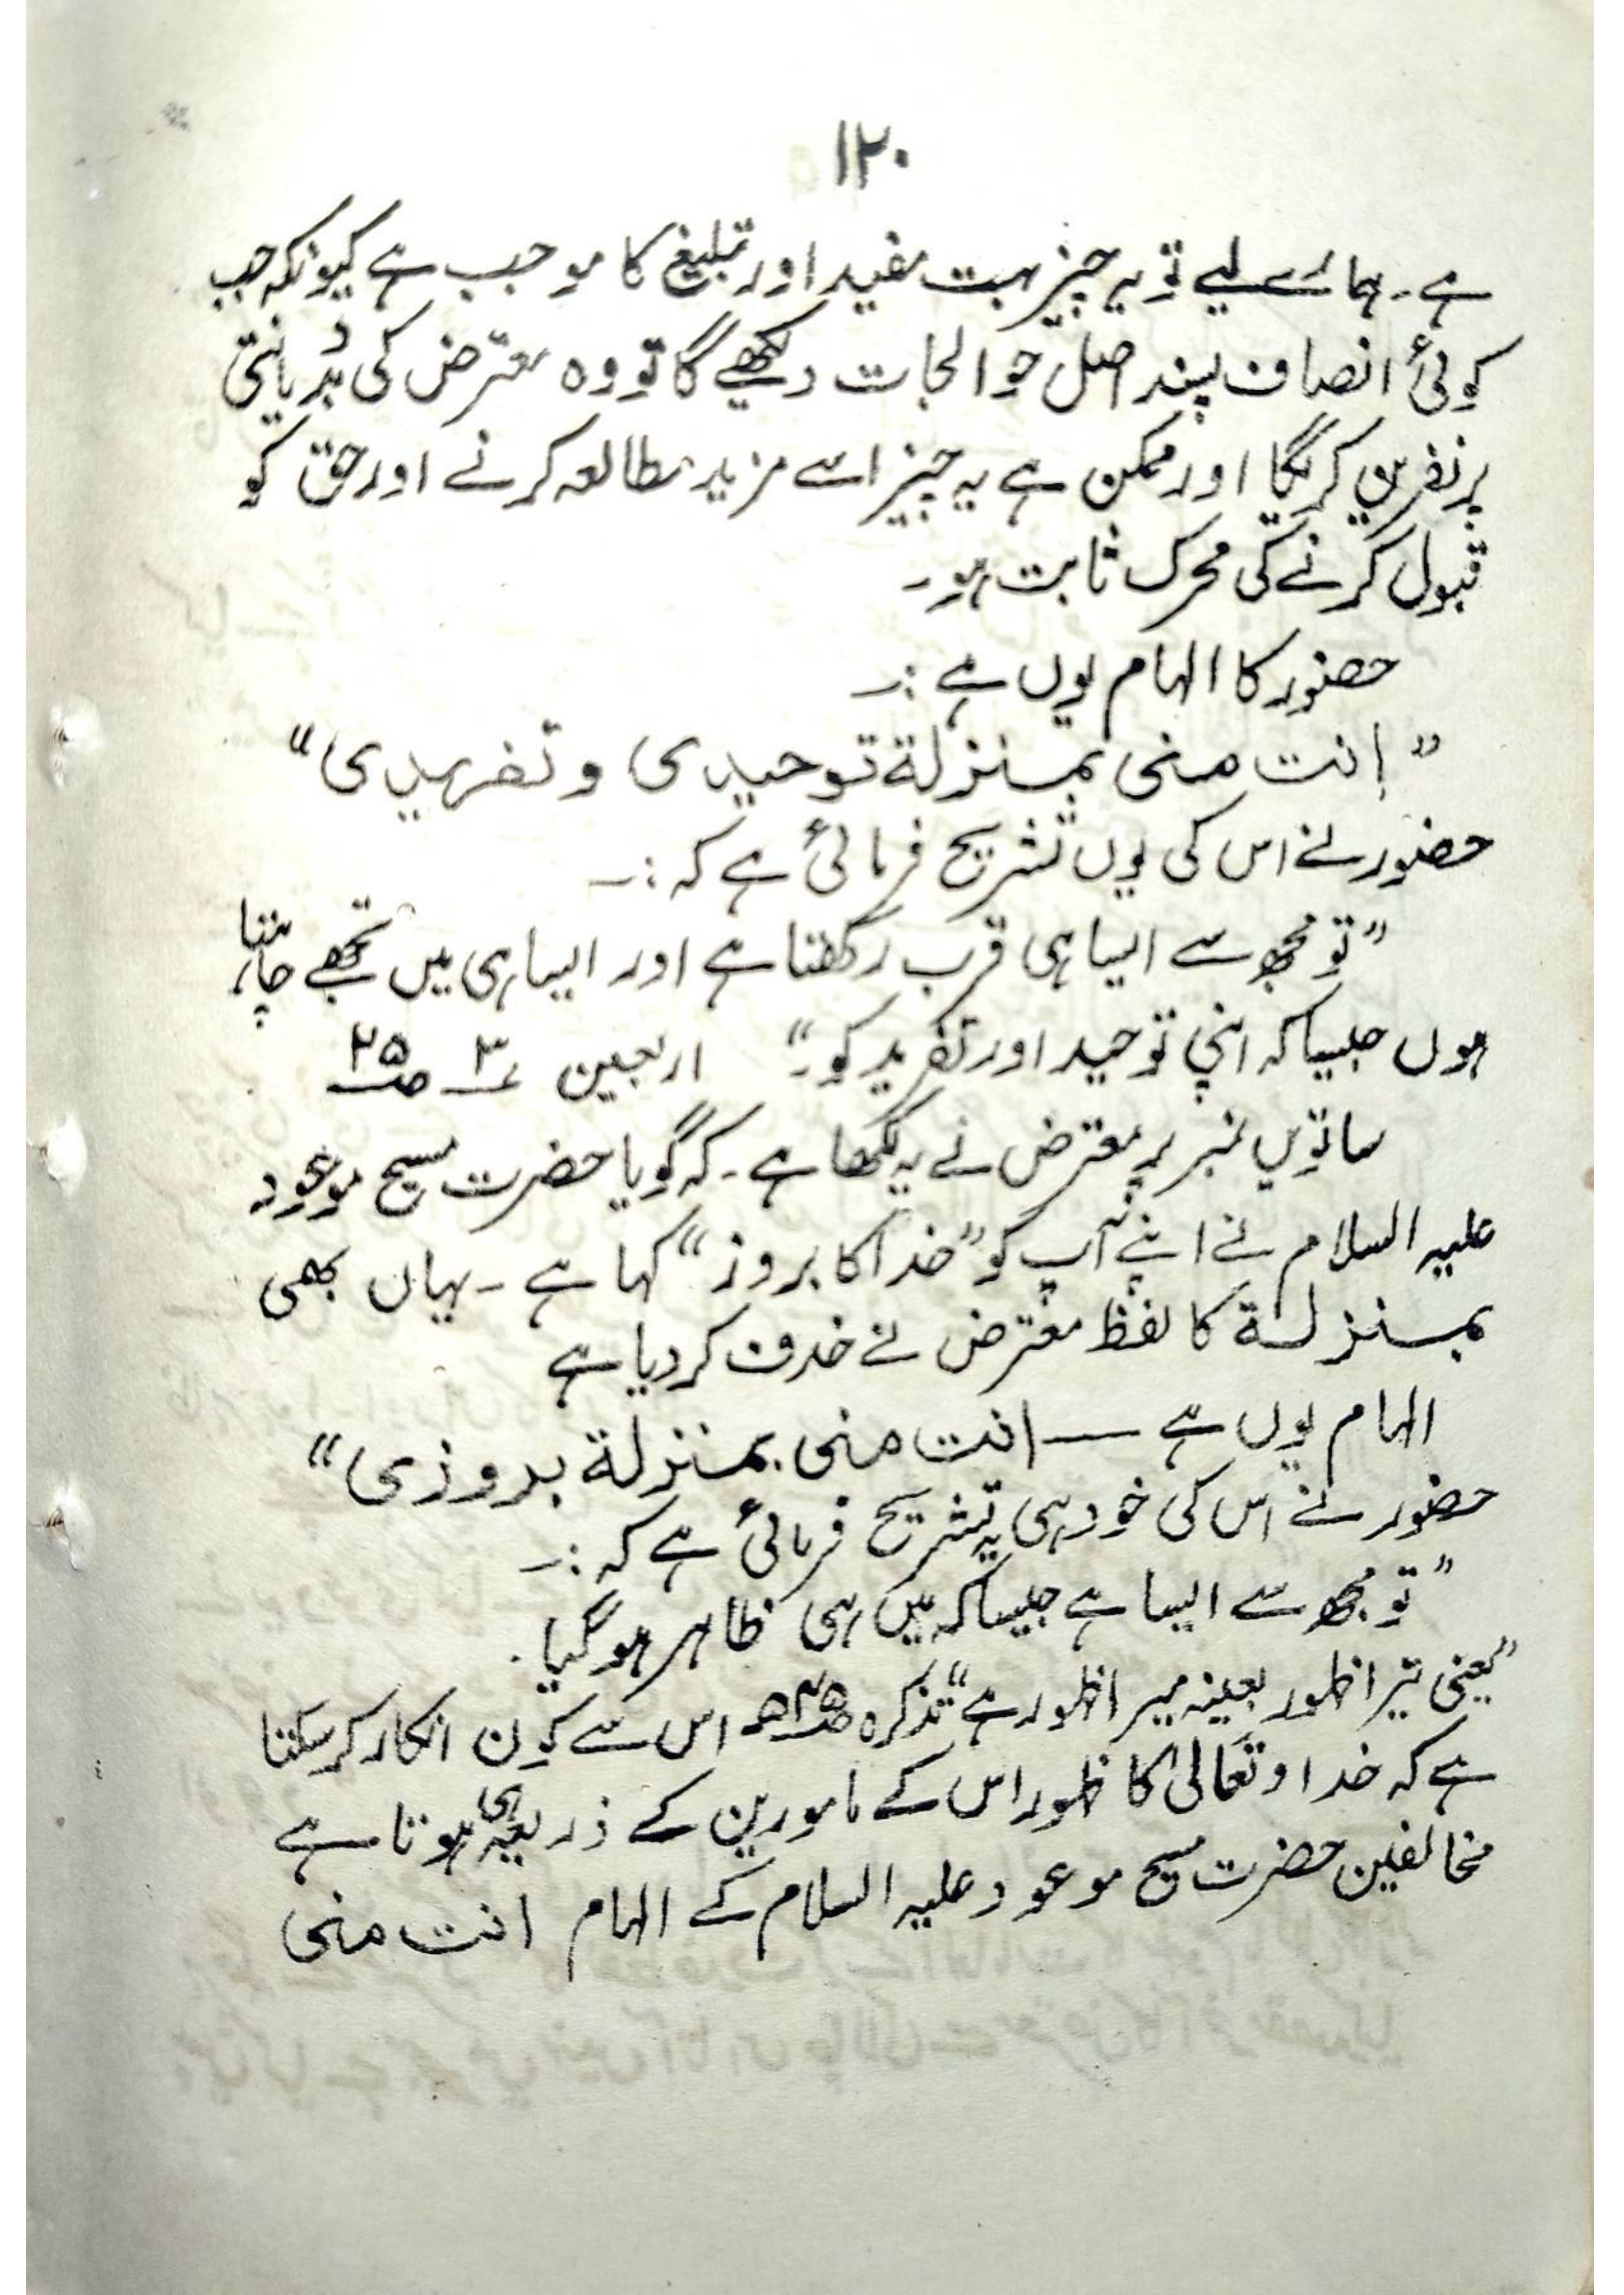 ۱۲۰
ہے۔ ہمارے لیے تو یہ چیز بہت مفید اور تبلیغ کا موجب ہے کیونکہ جب
کوئی انصاف پسند اصل حوالجات دیکھے گا تو وہ معترض کی بددیانتی
پر نفرین کریگا اور ممکن ہے یہ چیز اسے مزید مطالعہ کرنے اور حق کو
قبول کرنے کی محرک ثابت ہو۔
حضور کا الہام یوں ہے :۔
”انت منی بمنزلة توحیدی و تفریدی“
حضور نے اس کی یوں تشریح فرمائی ہے کہ :۔
”تو مجھ سے ایسا ہی قرب رکھتا ہے اور ایسا ہی میں تجھے چاہتا
ہوں جیسا کہ اپنی توحید اور تفرید کو۔“ اربعین ۳ ص۲۵
ساتویں نمبر پر معترض نے یہ لکھا ہے۔ کہ گویا حضرت مسیح موعود
علیہ السلام نے اپنے آپ کو ”خدا کا بروز“ کہا ہے ۔ یہاں بھی
بمنزلة کا لفظ معترض نے خذف کر دیا ہے
الہام یوں ہے — انت منی بمنزلة بروزی“
حضور نے اس کی خود ہی یہ تشریح فرمائی ہے کہ :۔
”تو مجھ سے ایسا ہے جیسا کہ میں ہی ظاہر ہو گیا .
”یعنی تیرا ظہور بعینہ میرا ظہور ہے“ تذکرہ اس سے کون انکار کر سکتا
ہے کہ خدا و تعالیٰ کا ظہور اس کے مامورین کے ذریعہ ہی ہوتا ہے
مخالفین حضرت مسیح موعود علیہ السلام کے الہام انت منی